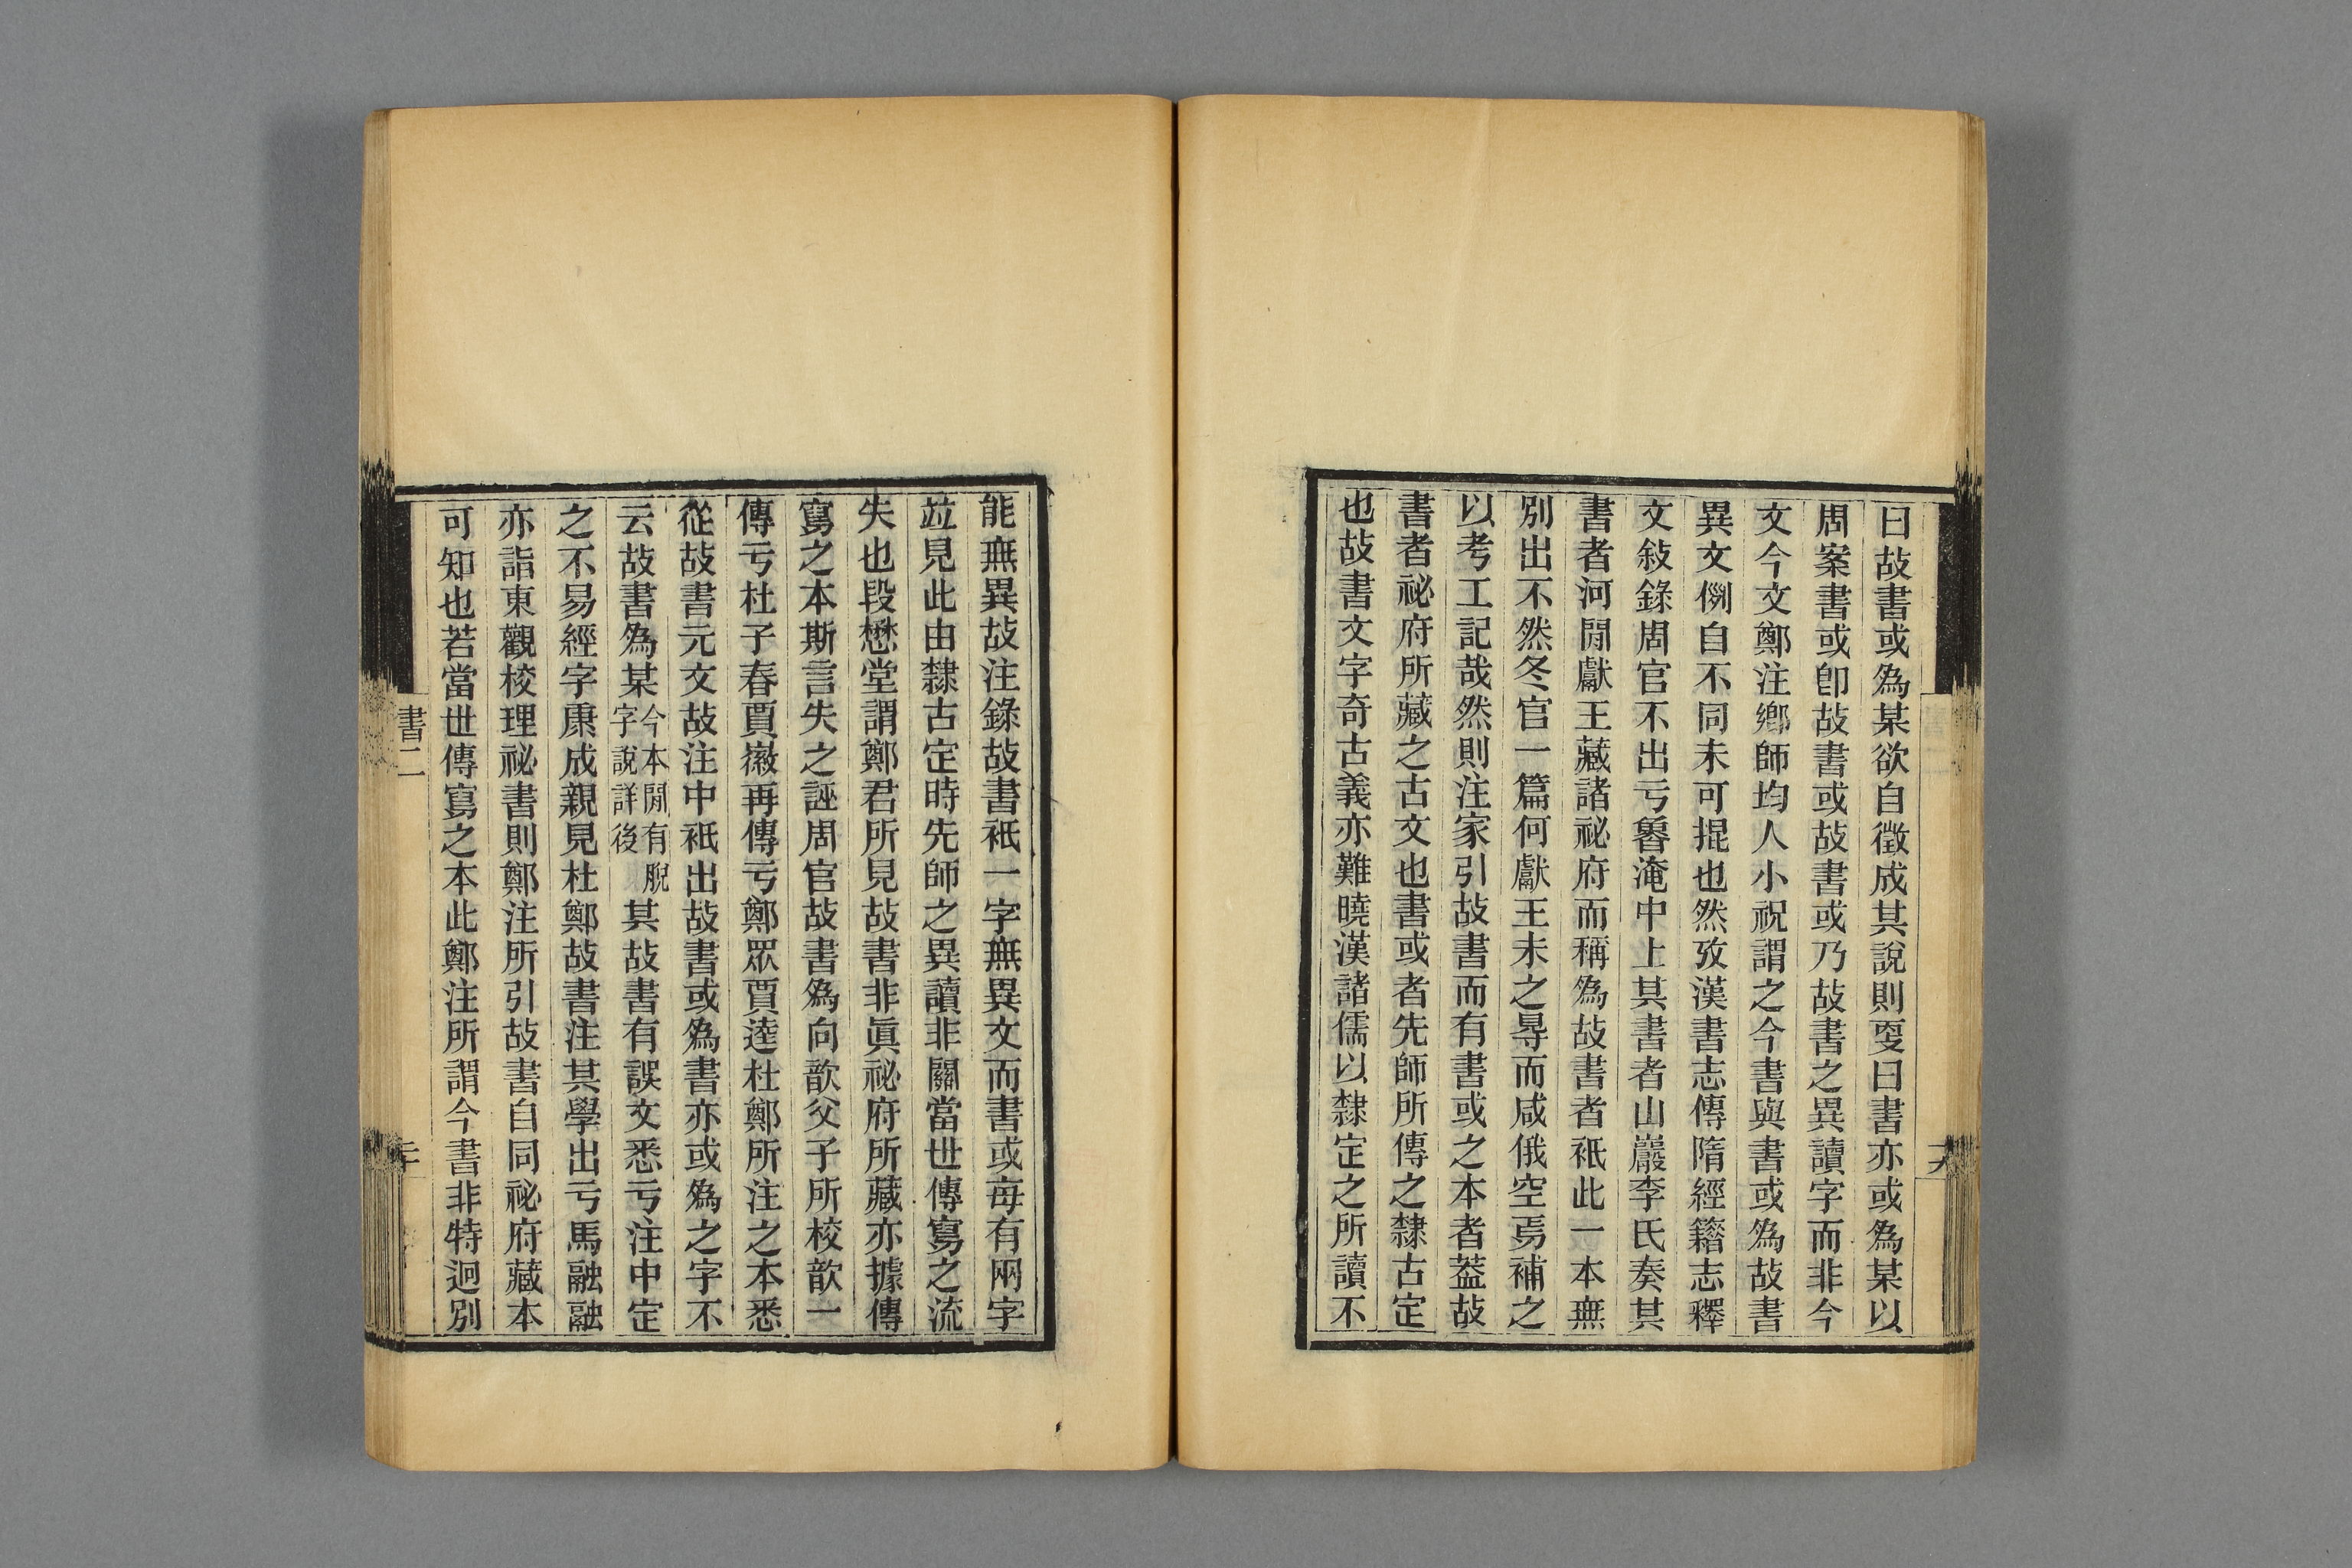 曰故書或為某欲自徵成其說則㪅曰書亦或為某以
周案書或卽故書或故書或乃故書之異讀字而非今
文今文鄭注鄉師均人小祝謂之今書與書或為故書
異文例自不同未可掍也然攷漢書志傳隋經籍志釋
文敍錄周官不出亏魯淹中上其書者山巖李氏奏其
書者河閒獻王藏諸祕府而稱為故書者祇此一本無
別出不然冬官一篇何獻王未之㝵而咸俄空焉補之
以考工記哉然則注家引故書而有書或之本者葢故
書者祕府所藏之古文也書或者先師所傳之隸古定
也故書文字奇古義亦難曉漢諸儒以隸定之所讀不
能無異故注錄故書祇一字無異文而書或每有兩字
竝見此由隸古定時先師之異讀非關當世傳寫之流
失也段懋堂謂鄭君所見故書非眞祕府所藏亦據傳
寫之本斯言失之誣周官故書為向歆父子所校歆一
傳亏杜子春賈徽再傳亏鄭眾賈逵杜鄭所注之本悉
從故書元文故注中祇出故書或為書亦或為之字不
云故書為某今本閒有脫字說詳後其故書有誤文悉亏注中定
之不易經字康成親見杜鄭故書注其學出亏馬融融
亦詣東觀校理祕書則鄭注所引故書自同祕府藏本
可知也若當世傳寫之本此鄭注所謂今書非特迥別
書二